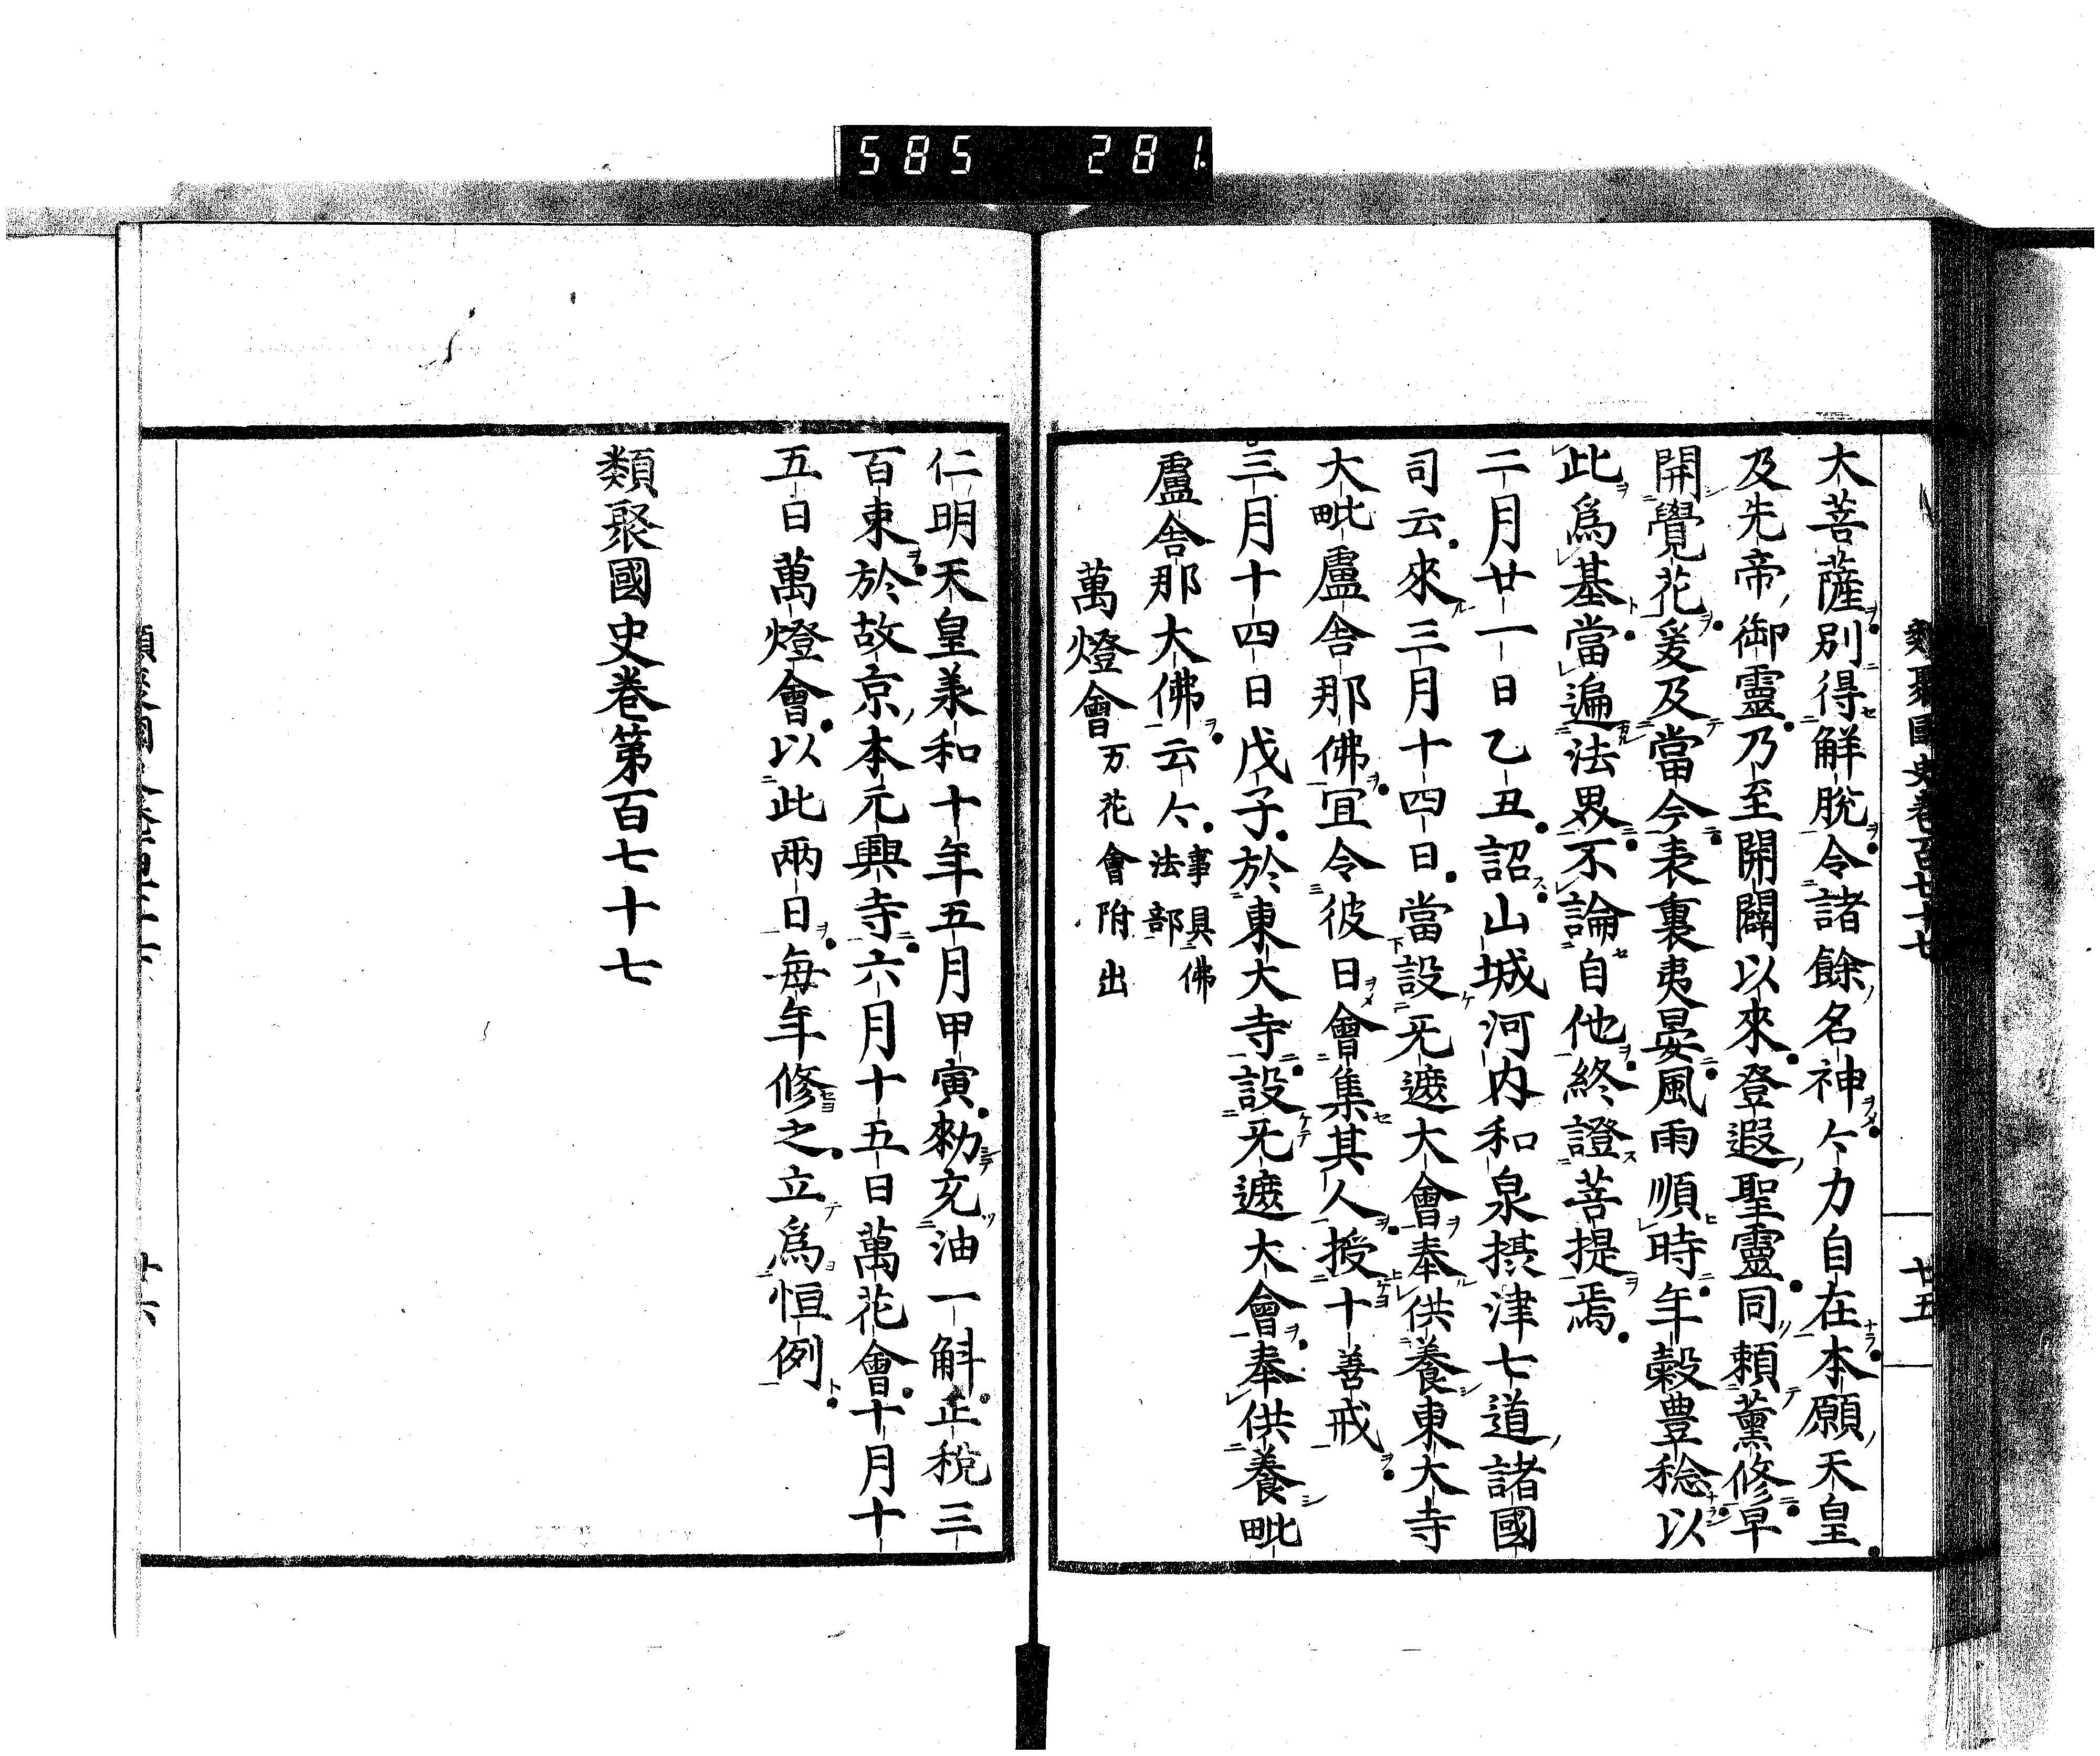 585 281
類聚國史卷百七十七
廿五
大菩薩別得解脫令諸餘名神〻力自在本願天皇
及先帝御靈乃至開闢以來登遐聖靈同頼薫修早
開覺花爰及當今表裏夷晏風雨順時年穀豊稔以
此爲基當遍法界不論自他終證菩提焉
二月廿一日乙丑詔山城河内和泉摂津七道諸國
司云來三月十四日當設无遮大會奉供養東大寺
大毗盧舎那佛宜令彼日會集其人授十善戒
三月十四日戊子於東大寺設无遮大會奉供養毗
盧舎那大佛云〻事具佛法部
萬燈會万花會附出
仁明天皇羕和十年五月甲寅勅充油一斛正税三
百束於故京本元興寺六月十五日萬花會十月十
五日萬燈會以此兩日每年修之立爲恒例
類聚國史卷第百七十七